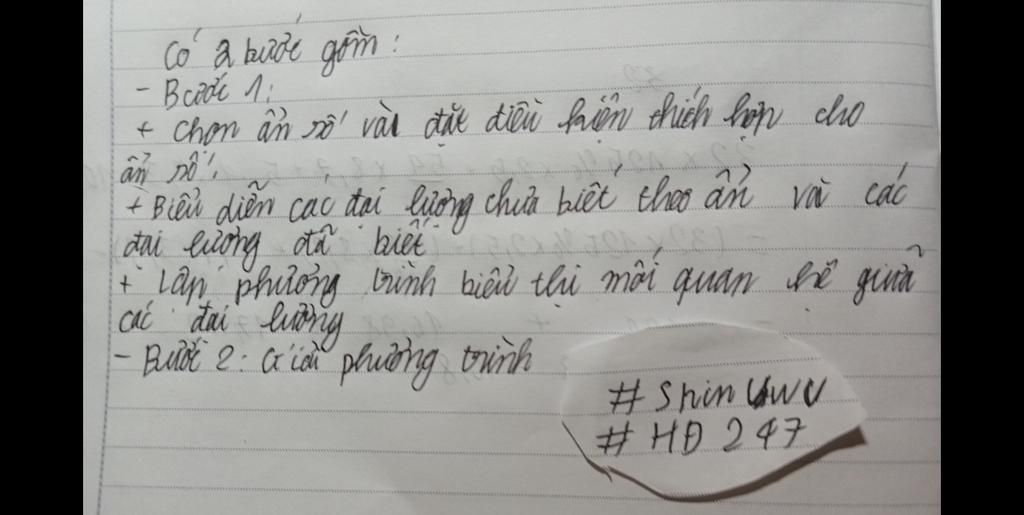 Có 2 bước gồm:
- Bước 1:
+ Chọn ẩn số và đặt điều kiện thích hợp cho
ẩn số.
+ Biểu diễn các đại lượng chưa biết theo ẩn và các
đại lượng đã biết
+ Lập phương trình biểu thị mối quan hệ giữa
các đại lượng
- Bước 2: Giải phương trình
# Shin UwU
# HĐ 247